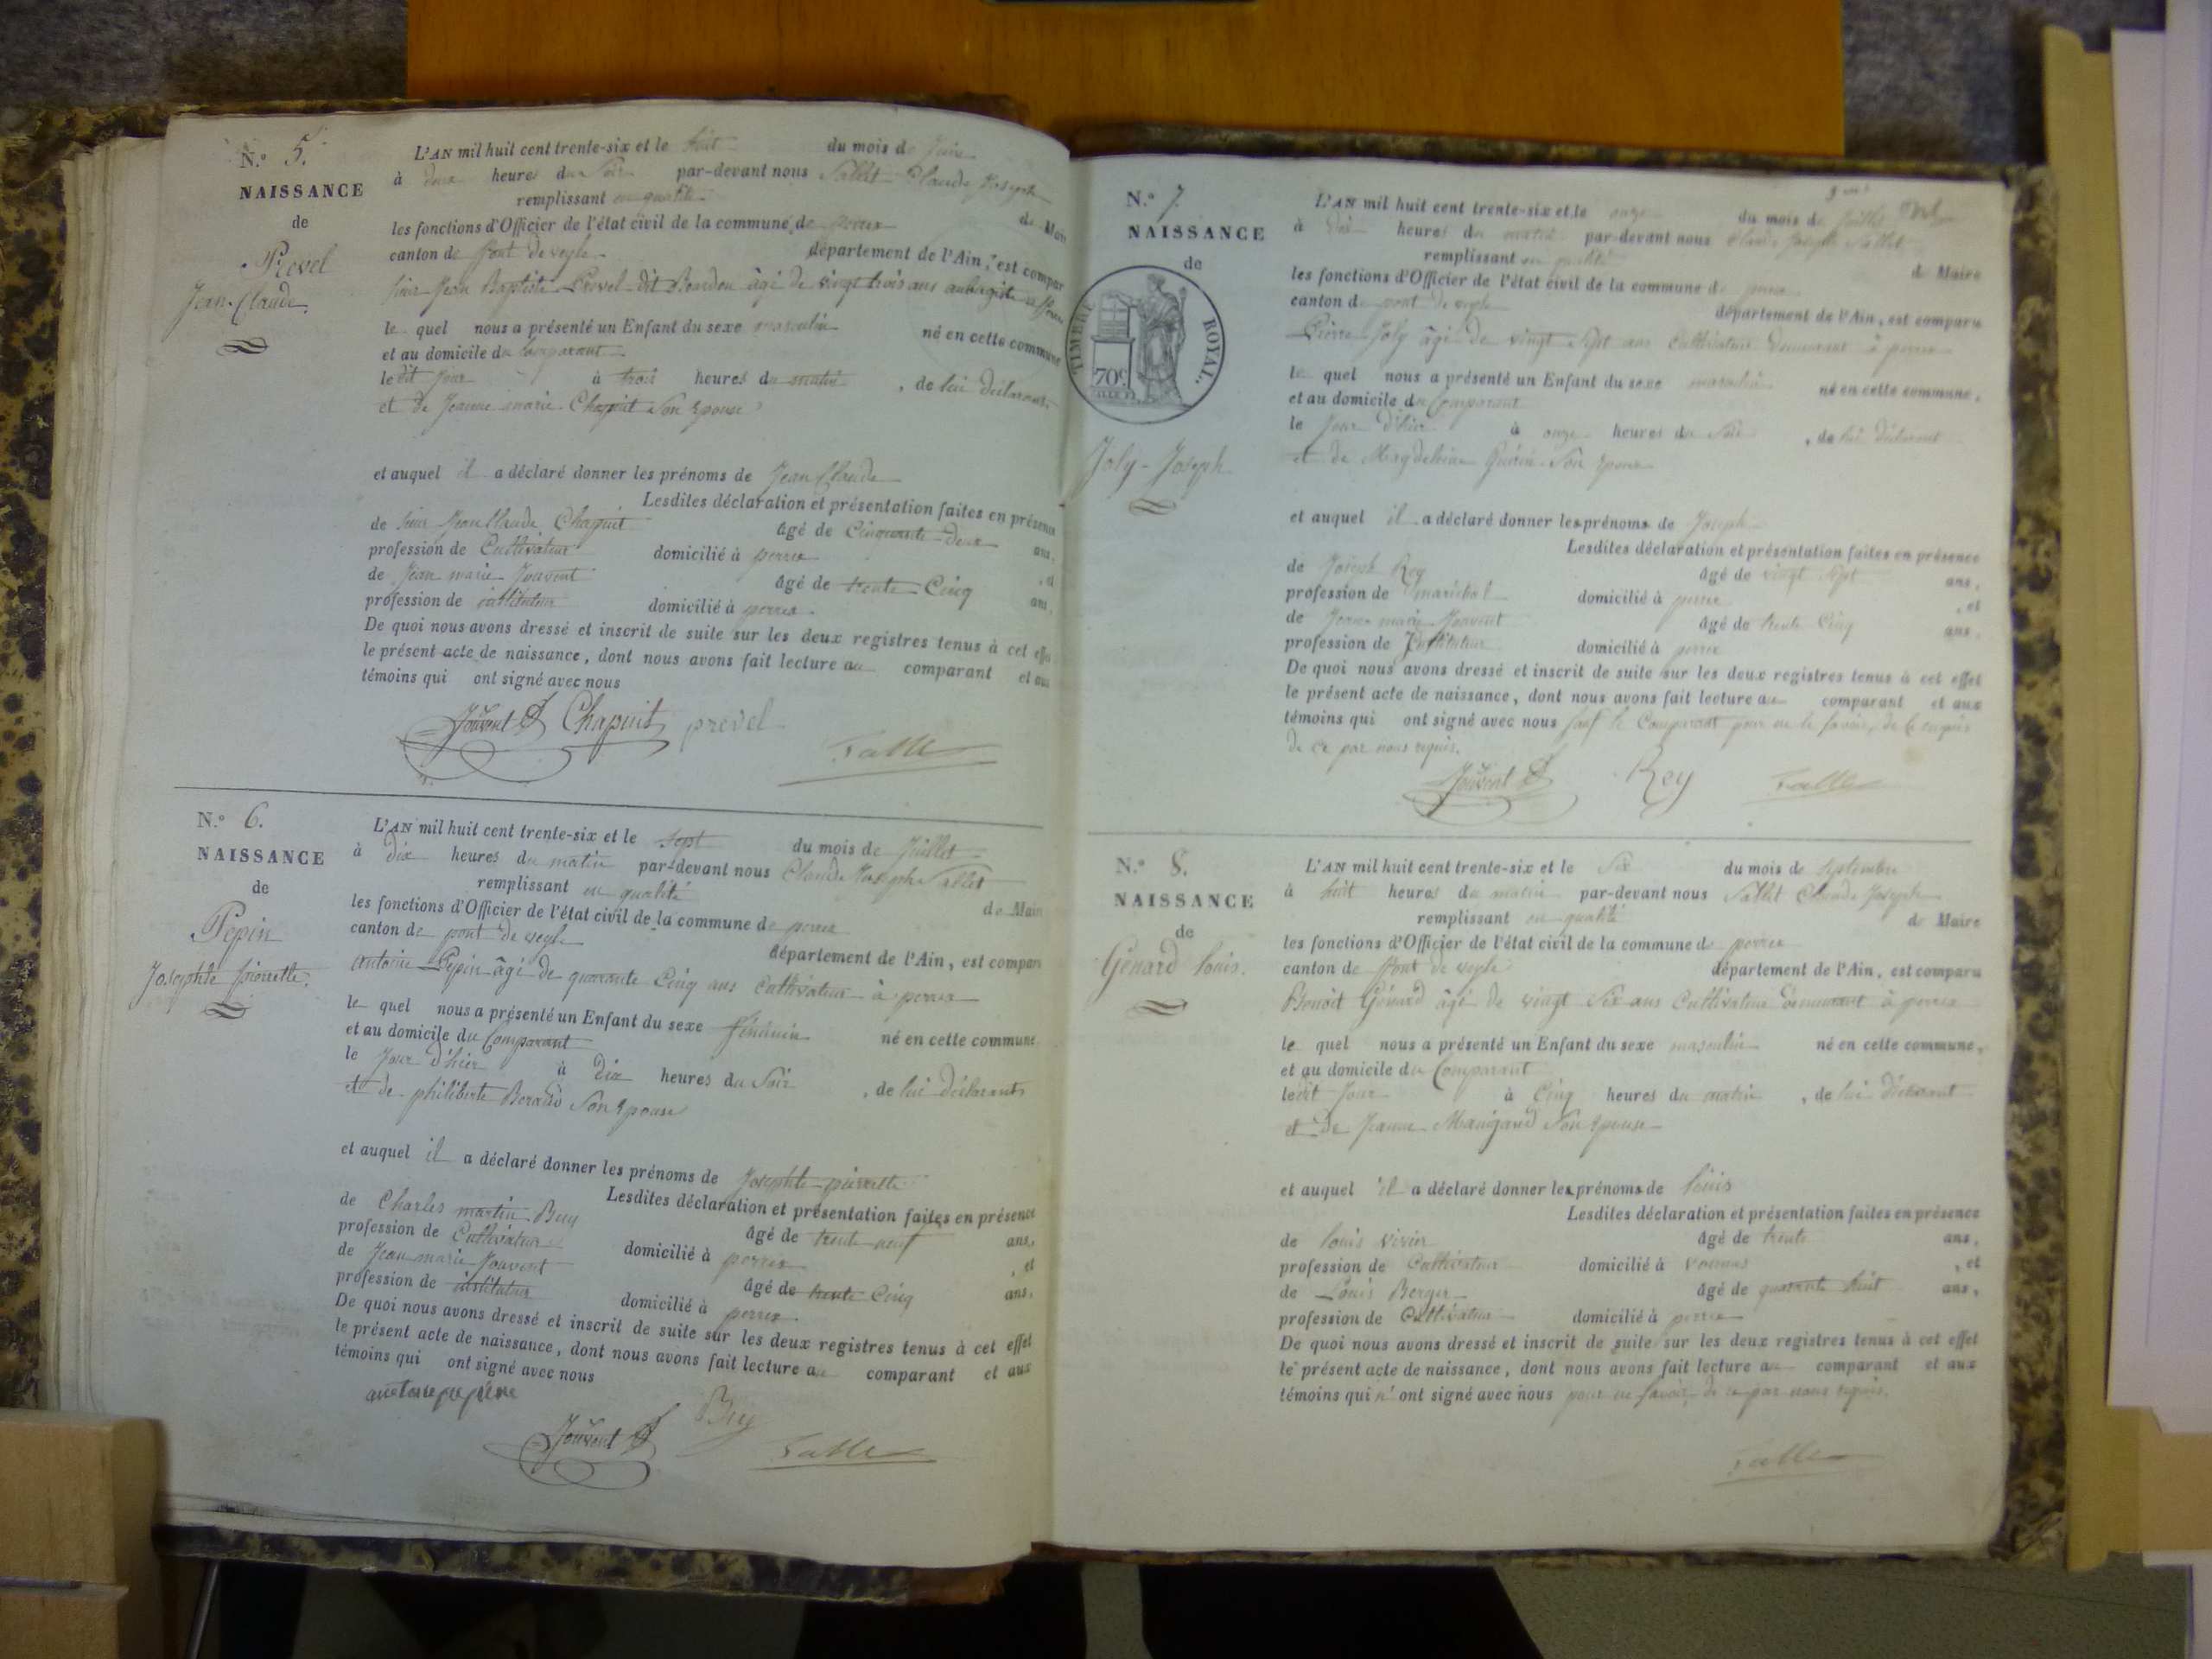 N.° 5.
NAISSANCE
de
Prevel
Jean-Claude.
L'AN mil huit cent trente-six et le huit du mois de Juin
à deux heures du Soir par-devant nous Sallet Claude Joseph
remplissant en qualité de Maire
les fonctions d'Officier de l'état civil de la commune de perrex
canton de pont de veyle département de l'Ain, est compar
Sieur Jean Baptiste Prevel dit Bourdon âgé de vingt trois ans aubergiste à
le quel nous a présenté un Enfant du sexe masculin né en cette commune
et au domicile du Comparant
le dit jour à trois heures du matin, de lui déclarant
et de Jeanne marie Chapuit Son Epouse
et auquel il a déclaré donner les prénoms de Jean Claude
Lesdites déclaration et présentation faites en présence
de Sieur Jean Claude Chapuit âgé de Cinquante-deux ans,
profession de Cultivateur domicilié à perrex, et
de Jean marie Jouvent âgé de trente Cinq ans,
profession de instituteur domicilié à perrex.
De quoi nous avons dressé et inscrit de suite sur les deux registres tenus à cet effet
le présent acte de naissance, dont nous avons fait lecture au comparant et aux
témoins qui ont signé avec nous
Jouvent Chapuit prevel
Sallet
N.° 6.
NAISSANCE
de
Pepin
Josephte pierrette.
L'AN mil huit cent trente-six et le sept du mois de Juillet
à dix heures du matin par-devant nous Claude Joseph Sallet
remplissant en qualité de Maire
les fonctions d'Officier de l'état civil de la commune de perrex
canton de pont de veyle département de l'Ain, est compar
antoine Pepin âgé de quarante Cinq ans Cultivateur à perrex
le quel nous a présenté un Enfant du sexe féminin né en cette commune
et au domicile du Comparant
le Jour d'hier à dix heures du Soir, de lui déclarant
et de philiberte Son Epouse
et auquel il a déclaré donner les prénoms de Josephte pierrette
Lesdites déclaration et présentation faites en présence
de Charles martin Buy âgé de trente neuf ans,
profession de Cultivateur domicilié à perrex, et
de Jean marie Jouvent âgé de trente Cinq ans,
profession de instituteur domicilié à perrex.
De quoi nous avons dressé et inscrit de suite sur les deux registres tenus à cet effet
le présent acte de naissance, dont nous avons fait lecture au comparant et aux
témoins qui ont signé avec nous
Jouvent Buy Sallet
N.° 7.
NAISSANCE
de
TIMBRE ROYAL.
70c
Joly-Joseph
L'AN mil huit cent trente-six et le onze du mois de Juillet
à dix heures du matin par-devant nous Claude Joseph Sallet
remplissant en qualité de Maire
les fonctions d'Officier de l'état civil de la commune de perrex
canton de pont de veyle département de l'Ain, est comparu
Pierre Joly âgé de vingt Sept ans Cultivateur Demeurant à perrex
le quel nous a présenté un Enfant du sexe masculin né en cette commune,
et au domicile du Comparant
le Jour d'hier à onze heures du Soir, de lui déclarant
et de Magdeleine Guérin Son Epouse
et auquel il a déclaré donner les prénoms de Joseph
Lesdites déclaration et présentation faites en présence
de Joseph Rey âgé de vingt Sept ans,
profession de maréchal domicilié à perrex, et
de Jean marie Jouvent âgé de trente Cinq ans,
profession de Instituteur domicilié à perrex
De quoi nous avons dressé et inscrit de suite sur les deux registres tenus à cet effet
le présent acte de naissance, dont nous avons fait lecture au comparant et aux
témoins qui ont signé avec nous sauf le Comparant pour ne le savoir, de ce enquis
de ce par nous requis.
Jouvent Rey Sallet
N.° 8.
NAISSANCE
de
Génard louis.
L'AN mil huit cent trente-six et le Six du mois de Septembre
à huit heures du matin par-devant nous Sallet Claude Joseph
remplissant en qualité de Maire
les fonctions d'Officier de l'état civil de la commune de perrex
canton de Pont de veyle département de l'Ain, est comparu
Benoit Génard âgé de vingt Six ans Cultivateur Demeurant à perrex
le quel nous a présenté un Enfant du sexe masculin né en cette commune,
et au domicile du Comparant
le dit Jour à Cinq heures du matin, de lui déclarant
et De Jeanne Mangard Son Epouse
et auquel il a déclaré donner les prénoms de louis
Lesdites déclaration et présentation faites en présence
de louis vivier âgé de trente ans,
profession de Cultivateur domicilié à vonnas, et
de Louis Berger âgé de quarante huit ans,
profession de Cultivateur domicilié à perrex
De quoi nous avons dressé et inscrit de suite sur les deux registres tenus à cet effet
le présent acte de naissance, dont nous avons fait lecture au comparant et aux
témoins qui n'ont signé avec nous pour ne savoir, de ce par nous requis.
Sallet